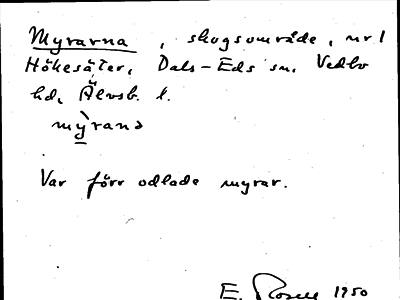 Myrarna, skogsområde, nr 1
Hökesäter, Dals-Eds sn. Vedbo
hd, Älvsb. l.
mỳrana
Var förr odlade myrar.
E. Rosell 1950